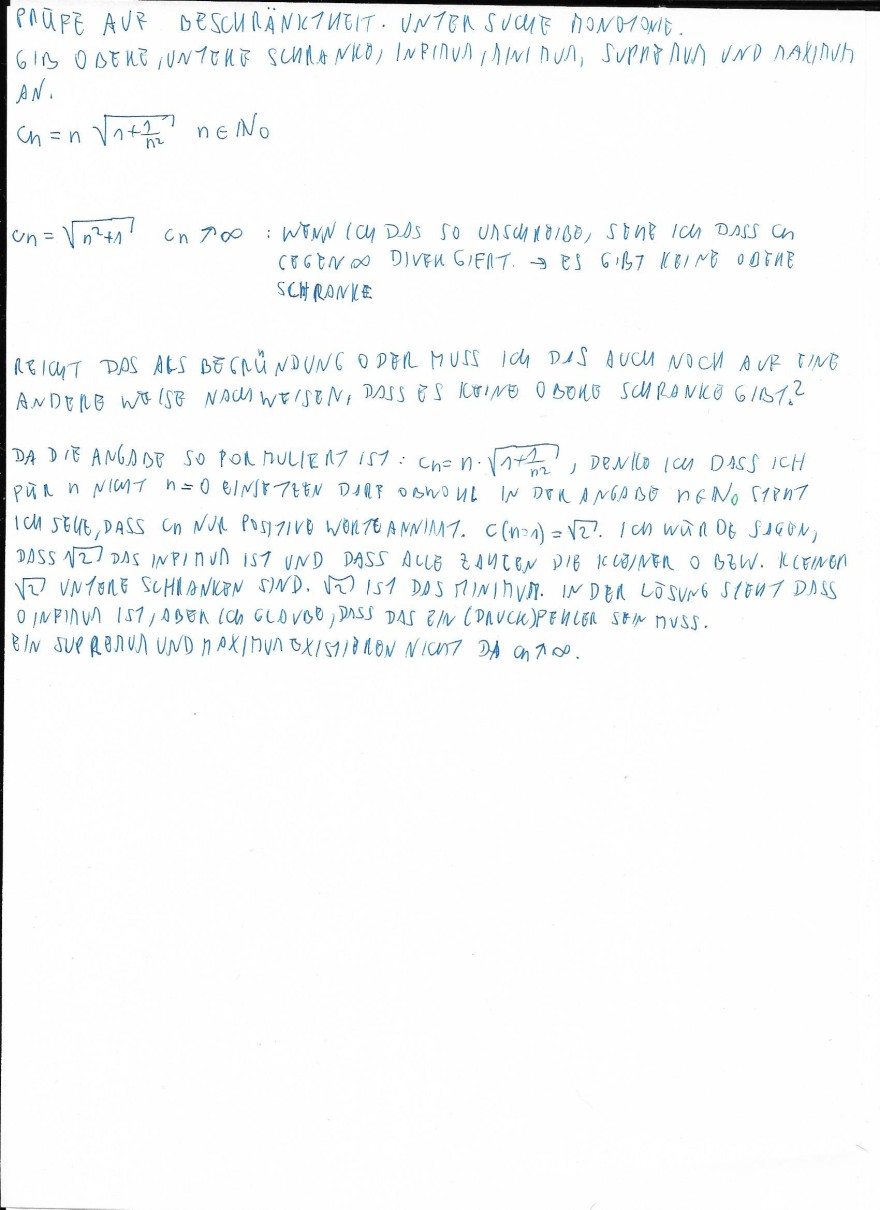 PRÜFE AUF BESCHRÄNKTHEIT. UNTERSUCHE MONOTONIE.
GIB OBERE, UNTERE SCHRANKE, INFIMUM, MINIMUM, SUPREMUM UND MAXIMUM
AN.
cn = n √(1+1/n²) n ∈ ℕ0
cn = √(n²+1) cn ↗ ∞ : WENN ICH DAS SO UMSCHREIBE, SEHE ICH DASS cn
GEGEN ∞ DIVERGIERT. → ES GIBT KEINE OBERE
SCHRANKE
REICHT DAS ALS BEGRÜNDUNG ODER MUSS ICH DAS AUCH NOCH AUF EINE
ANDERE WEISE NACHWEISEN, DASS ES KEINE OBERE SCHRANKE GIBT?
DA DIE ANGABE SO FORMULIERT IST: cn = n·√(1+1/n²), DENKE ICH DASS ICH
FÜR n NICHT n=0 EINSETZEN DARF OBWOHL IN DER ANGABE n∈ℕ0 STEHT
ICH SEHE, DASS cn NUR POSITIVE WERTE ANNIMMT. c(n=1) = √2. ICH WÜRDE SAGEN,
DASS √2 DAS INFIMUM IST UND DASS ALLE ZAHLEN DIE KLEINER 0 BZW. KLEINER
√2 UNTERE SCHRANKEN SIND. √2 IST DAS MINIMUM. IN DER LÖSUNG STEHT DASS
0 INFIMUM IST, ABER ICH GLAUBE, DASS DAS EIN (DRUCK)FEHLER SEIN MUSS.
EIN SUPREMUM UND MAXIMUM EXISTIEREN NICHT DA cn ↗ ∞.